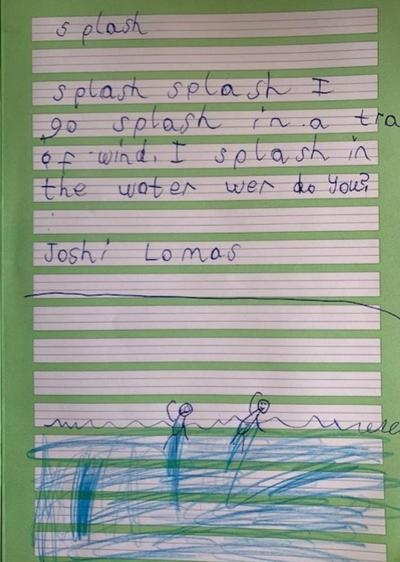 splash
splash splash I
go splash in a tra
of wind. I splash in
the water wer do you?
Joshi Lomas